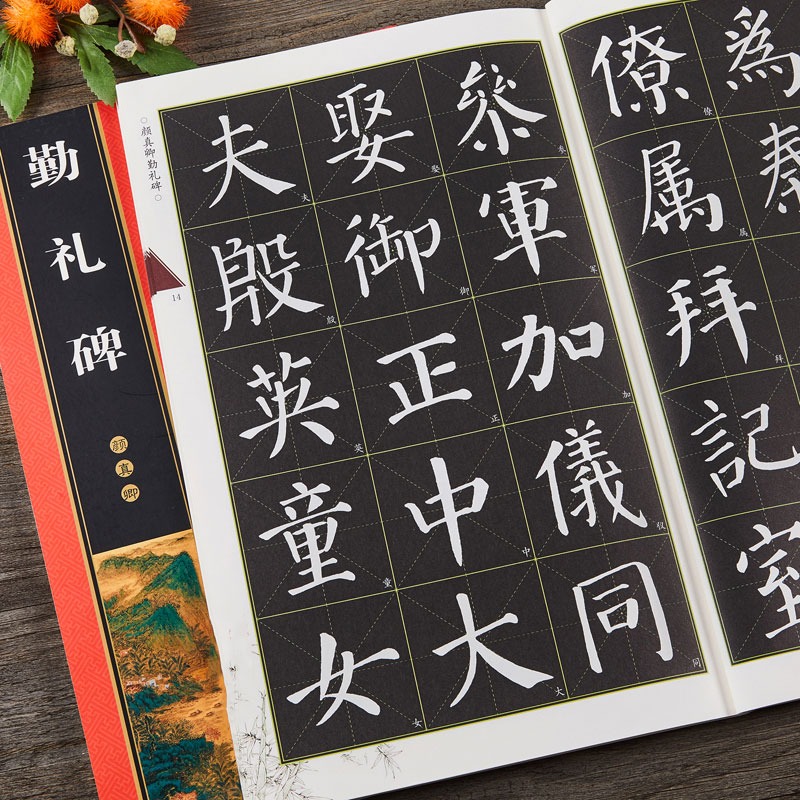 勤礼碑
颜真卿
颜真卿勤礼碑
14
為
僚属拜記室
僚属拜
叅軍加儀同
参军加仪同
娶御正中大
娶御正中大
夫殷英童女
夫殷英童女